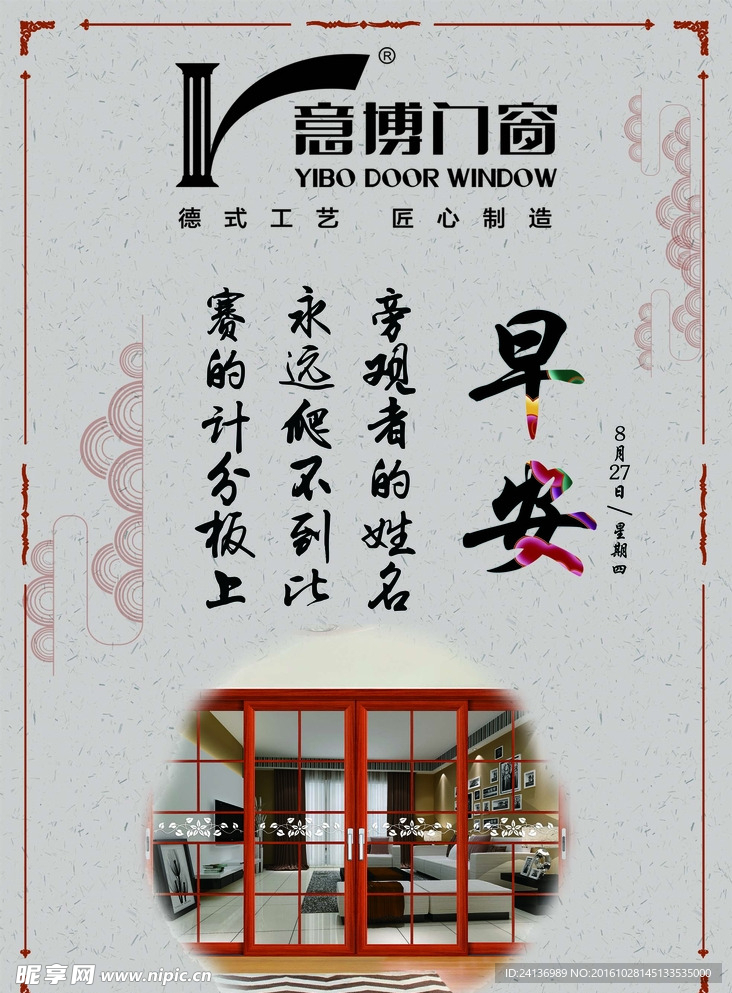 ®
意博门窗
YIBO DOOR WINDOW
德式工艺 匠心制造
早安
8月27日/星期四
旁观者的姓名
永远爬不到比
赛的计分板上
昵享网 www.nipic.cn
ID:24136989 NO:20161028145133535000